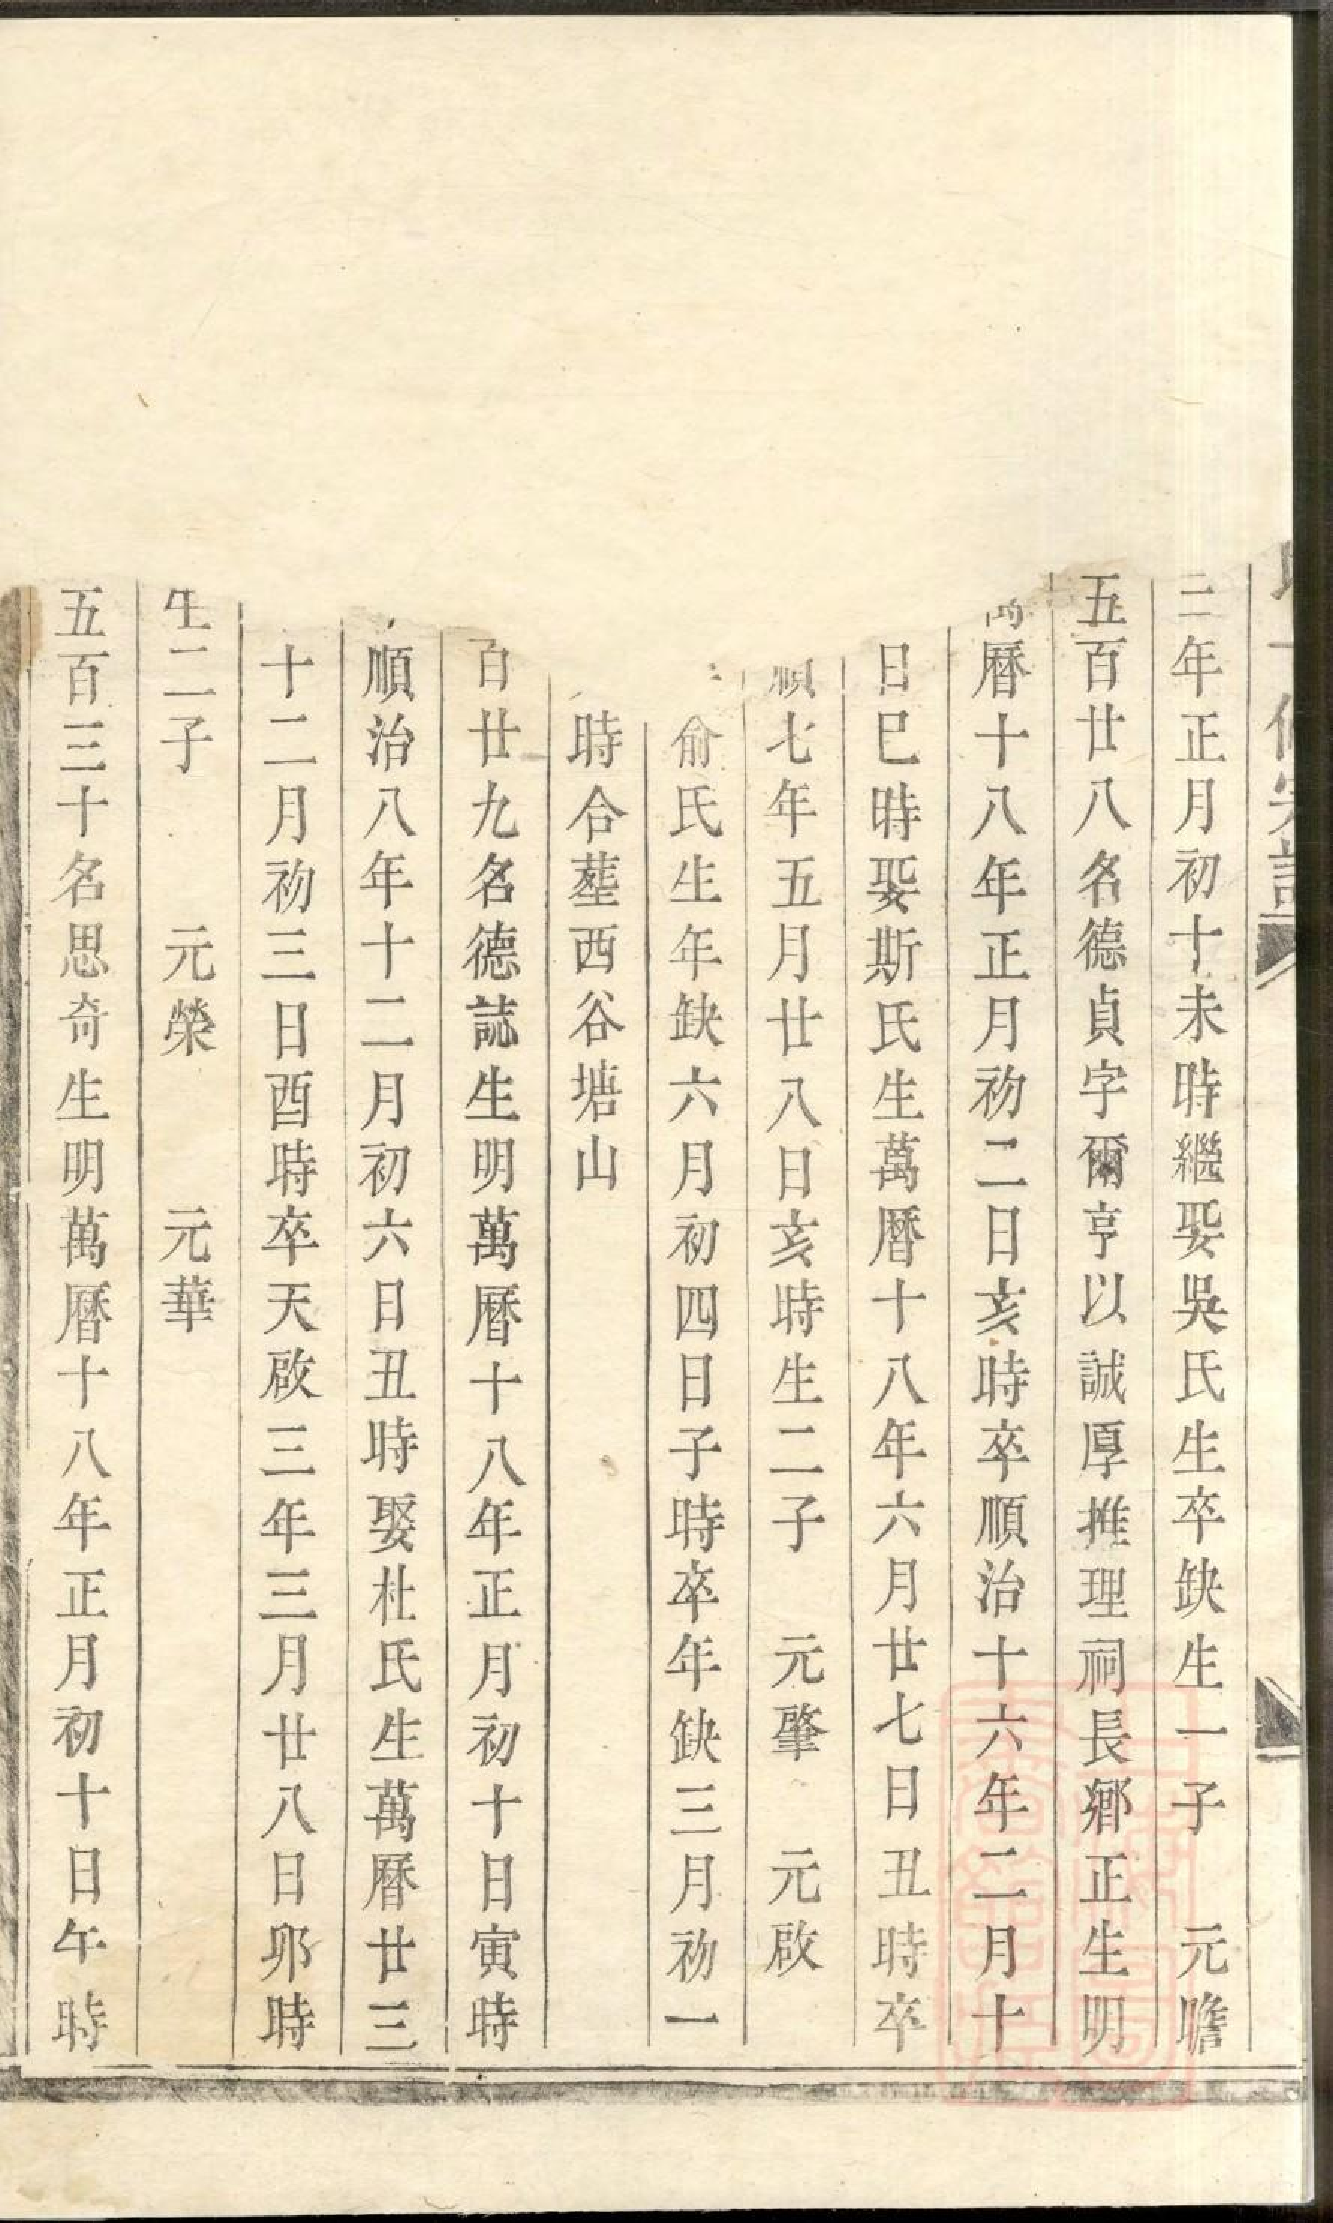 二年正月初十未時繼娶吳氏生卒缺生一子　元瞻
五百廿八名德貞字爾亨以誠厚推理祠長鄉正生明
萬曆十八年正月初二日亥時卒順治十六年二月十
日巳時娶斯氏生萬曆十八年六月廿七日丑時卒
順七年五月廿八日亥時生二子　元肇　元啟
俞氏生年缺六月初四日子時卒年缺三月初一
時合塟西谷塘山
百廿九名德誌生明萬曆十八年正月初十日寅時
順治八年十二月初六日丑時娶杜氏生萬曆廿三
十二月初三日酉時卒天啟三年三月廿八日卯時
生二子　元榮　元華
五百三十名思奇生明萬曆十八年正月初十日午時